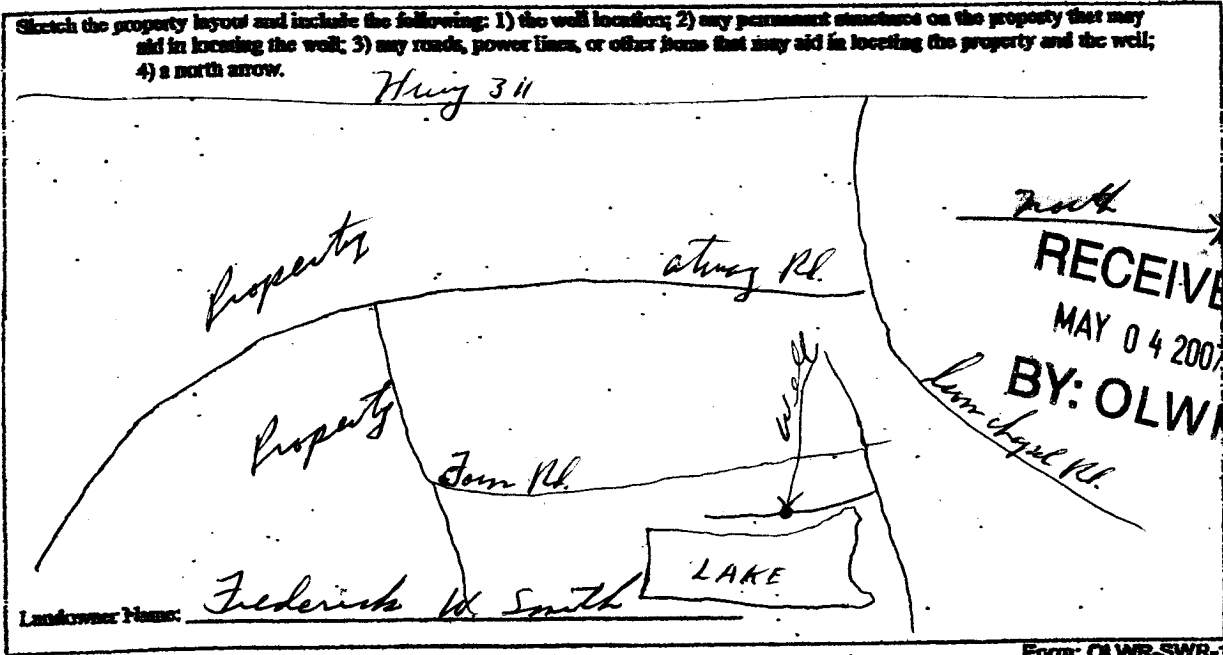 Sketch the property layout and include the following: 1) the well location; 2) any permanent structures on the property that may
aid in locating the well; 3) any roads, power lines, or other items that may aid in locating the property and the well;
4) a north arrow.
Hwy 311
north
RECEIVE
MAY 04 2007
BY: OLWR
Property
Rd.
Property
well
Chapel Rd.
Farm Rd.
LAKE
Landowner Name: Frederick W. Smith
Form: OLWR-SWR-1